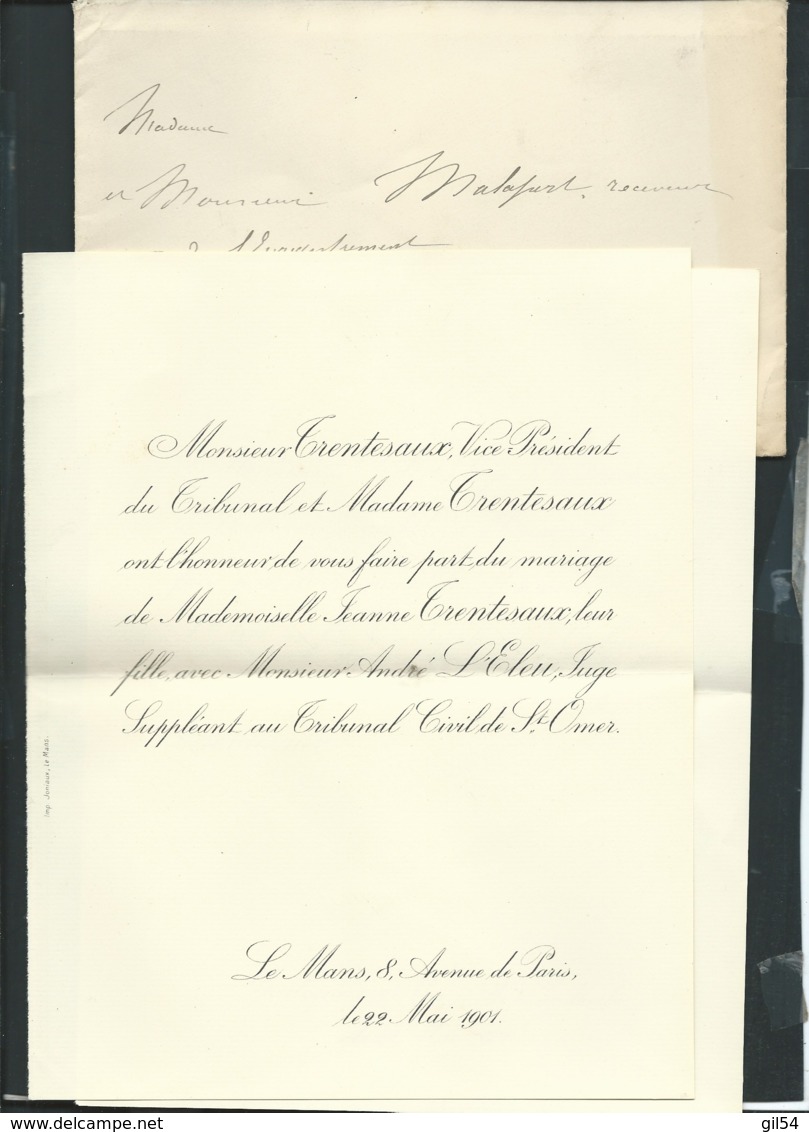 Madame
et Monsieur Malapert, receveur
de l'Enregistrement
Monsieur Trentesaux, Vice Président
du Tribunal et Madame Trentesaux
ont l'honneur de vous faire part du mariage
de Mademoiselle Jeanne Trentesaux, leur
fille, avec Monsieur André L'Eleu, Juge
Suppléant au Tribunal Civil de St. Omer.
Imp. Joniaux, Le Mans.
Le Mans, 8, Avenue de Paris,
le 22 Mai 1901.
www.delcampe.net
gil54